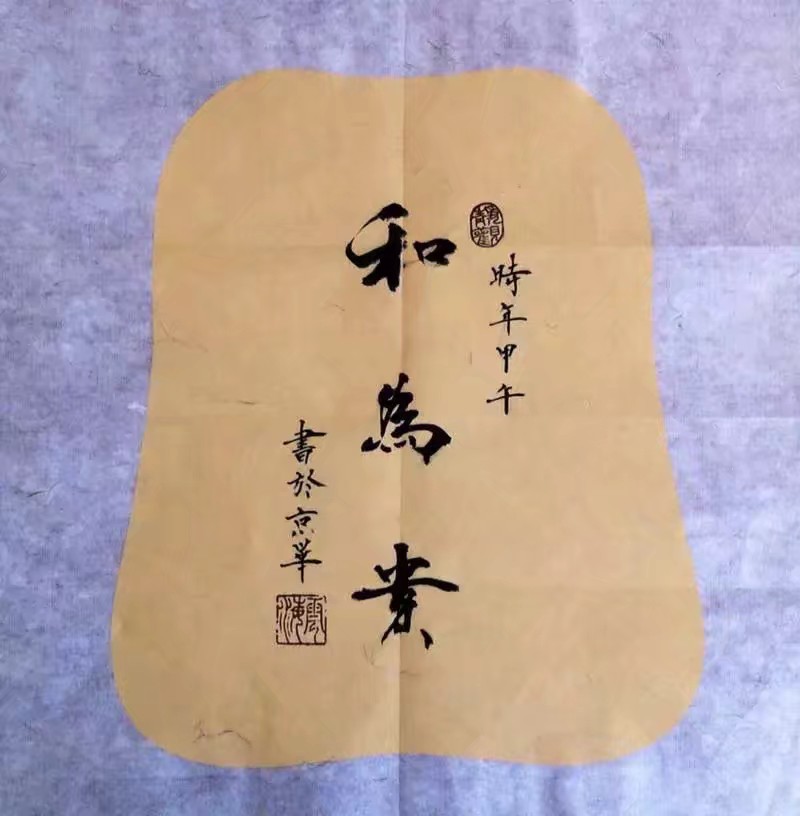 靜觀
時年甲午
和為貴
書於京華